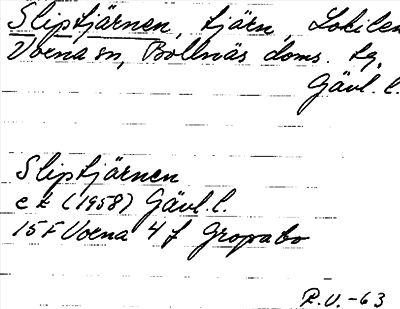 Sliptjärnen, tjärn, Lokilen
Voxna sn, Bollnäs doms. hg,
Gävl. l.
Sliptjärnen
ek (1958) Gävl. l.
15F Voxna 4 f Gropabo
R.V. -63